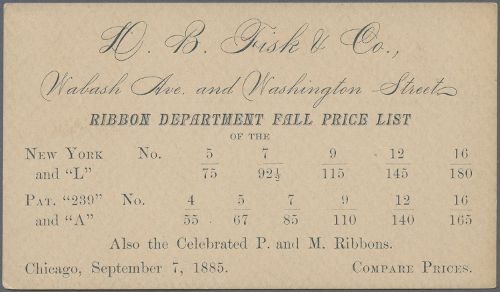 D. B. Fisk & Co.,
Wabash Ave. and Washington Street
RIBBON DEPARTMENT FALL PRICE LIST
OF THE
NEW YORK No. 5 7 9 12 16
and "L" 75 92½ 115 145 180
PAT. "239" No. 4 5 7 9 12 16
and "A" 55 67 85 110 140 165
Also the Celebrated P. and M. Ribbons.
Chicago, September 7, 1885. COMPARE PRICES.